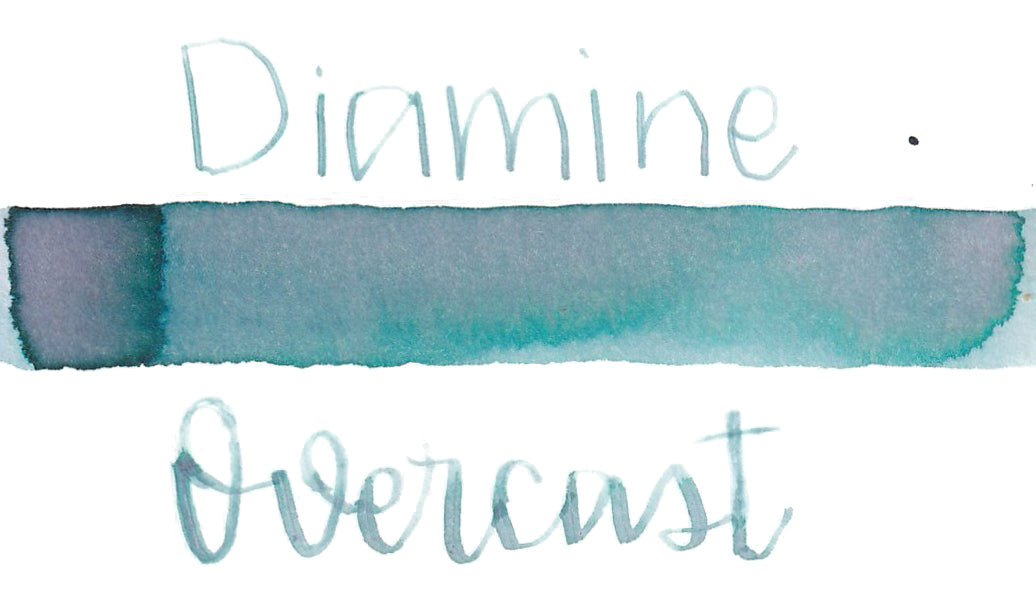 Diamine
Overcast